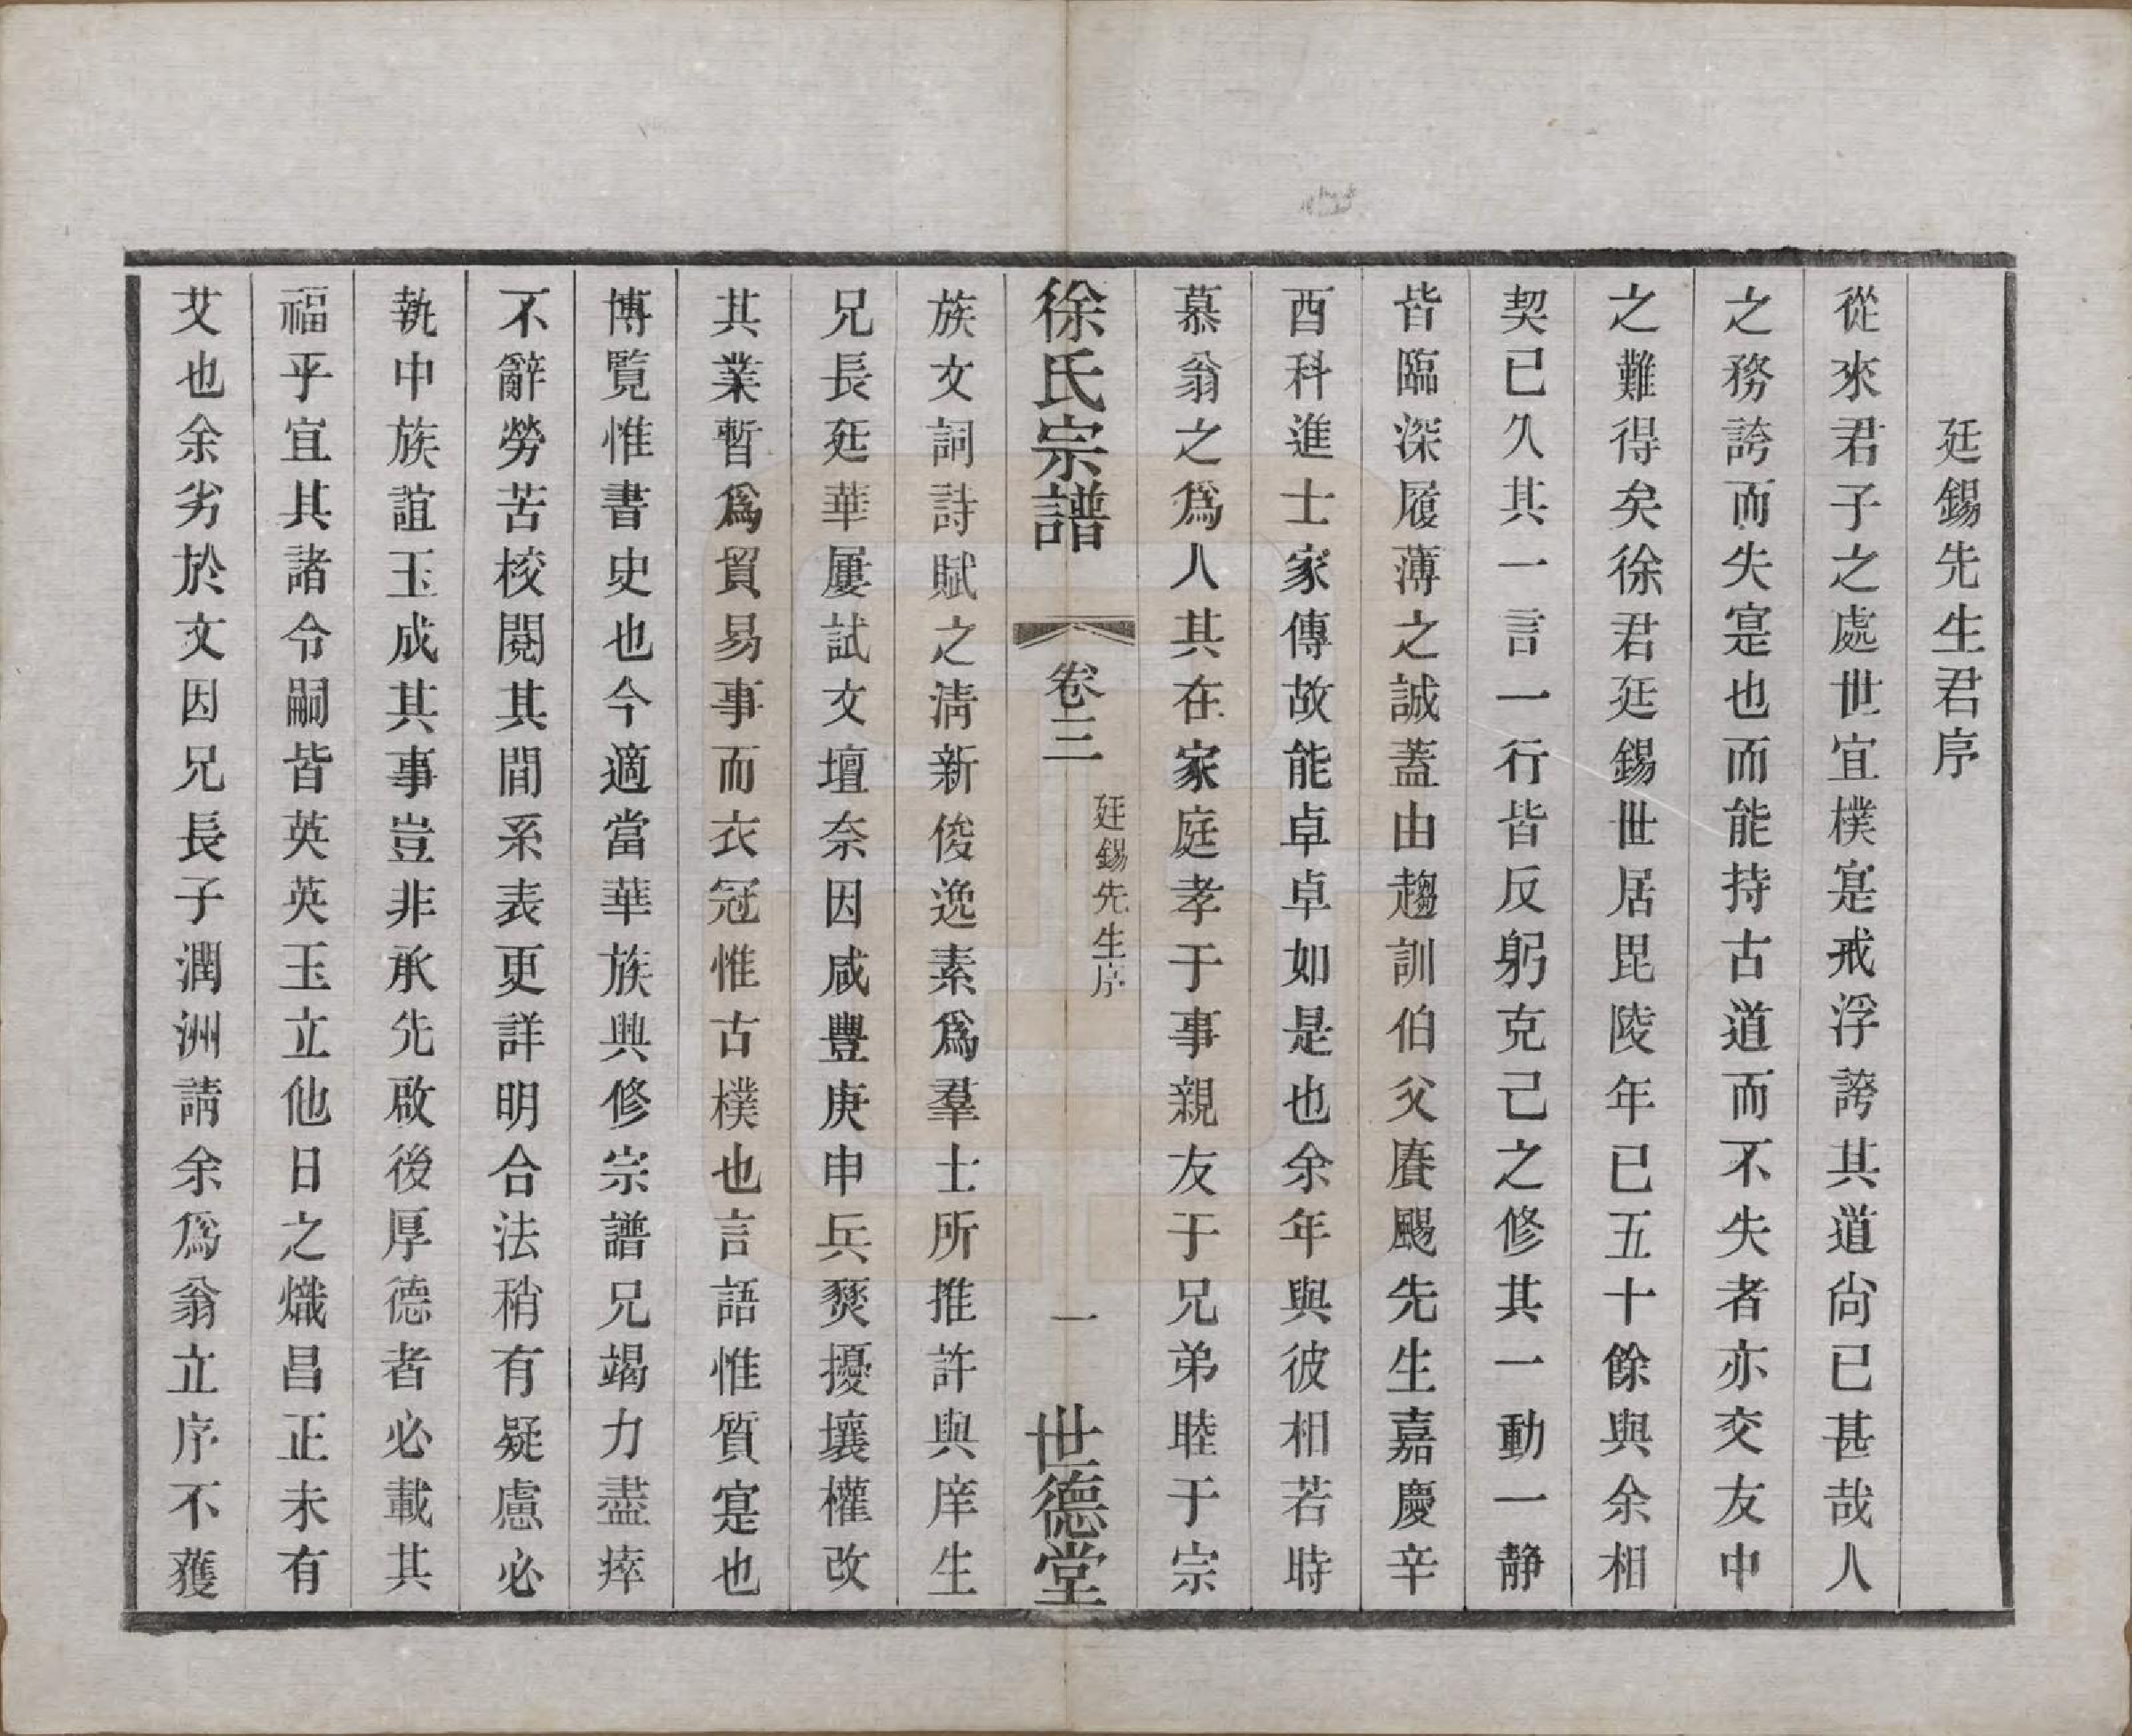 廷錫先生君序
從來君子之處世宜樸寔戒浮誇其道尙已甚哉人
之務誇而失寔也而能持古道而不失者亦交友中
之難得矣徐君廷錫世居毘陵年已五十餘與余相
契已久其一言一行皆反躬克己之修其一動一靜
皆臨深履薄之誠蓋由趨訓伯父賡颺先生嘉慶辛
酉科進士家傳故能卓卓如是也余年與彼相若時
慕翁之爲人其在家庭孝于事親友于兄弟睦于宗
徐氏宗譜
卷三
廷錫先生序
一
世德堂
族文詞詩賦之淸新俊逸素爲羣士所推許與庠生
兄長廷華屢試文壇奈因咸豐庚申兵燹擾壤權改
其業暫爲貿易事而衣冠惟古樸也言語惟質寔也
博覽惟書史也今適當華族興修宗譜兄竭力盡瘁
不辭勞苦校閱其間系表更詳明合法稍有疑慮必
執中族誼玉成其事豈非承先啟後厚德者必載其
福乎宜其諸令嗣皆英英玉立他日之熾昌正未有
艾也余劣於文因兄長子潤洲請余爲翁立序不獲